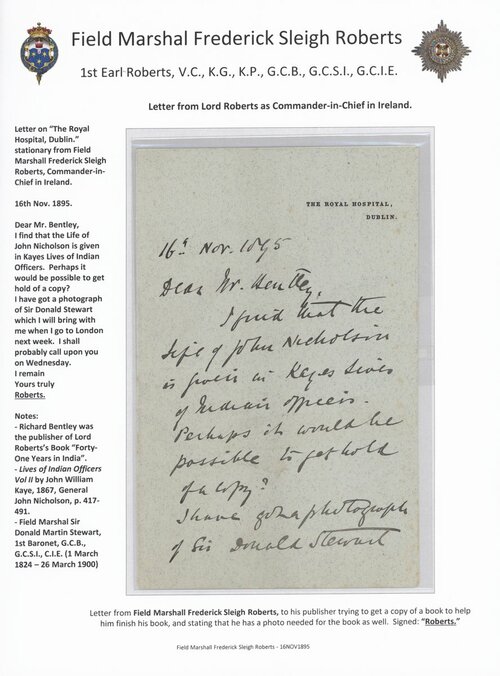 Field Marshal Frederick Sleigh Roberts
1st Earl Roberts, V.C., K.G., K.P., G.C.B., G.C.S.I., G.C.I.E.
Letter from Lord Roberts as Commander-in-Chief in Ireland.
Letter on "The Royal
Hospital, Dublin."
stationary from Field
Marshall Frederick Sleigh
Roberts, Commander-in-
Chief in Ireland.
16th Nov. 1895.
Dear Mr. Bentley,
I find that the Life of
John Nicholson is given
in Kayes Lives of Indian
Officers.  Perhaps it
would be possible to get
hold of a copy?
I have got a photograph
of Sir Donald Stewart
which I will bring with
me when I go to London
next week.  I shall
probably call upon you
on Wednesday.
I remain
Yours truly
Roberts.
Notes:
- Richard Bentley was
the publisher of Lord
Roberts's Book "Forty-
One Years in India".
- Lives of Indian Officers
Vol II by John William
Kaye, 1867, General
John Nicholson, p. 417-
491.
- Field Marshal Sir
Donald Martin Stewart,
1st Baronet, G.C.B.,
G.C.S.I., C.I.E. (1 March
1824 – 26 March 1900)
THE ROYAL HOSPITAL,
DUBLIN.
16th Nov. 1895
Dear Mr. Bentley,
I find that the
Life of John Nicholson
is given in Kayes Lives
of Indian Officers.
Perhaps it would be
possible to get hold
of a copy?
I have got a photograph
of Sir Donald Stewart
Letter from Field Marshall Frederick Sleigh Roberts, to his publisher trying to get a copy of a book to help
him finish his book, and stating that he has a photo needed for the book as well.  Signed: "Roberts."
Field Marshall Frederick Sleigh Roberts - 16NOV1895